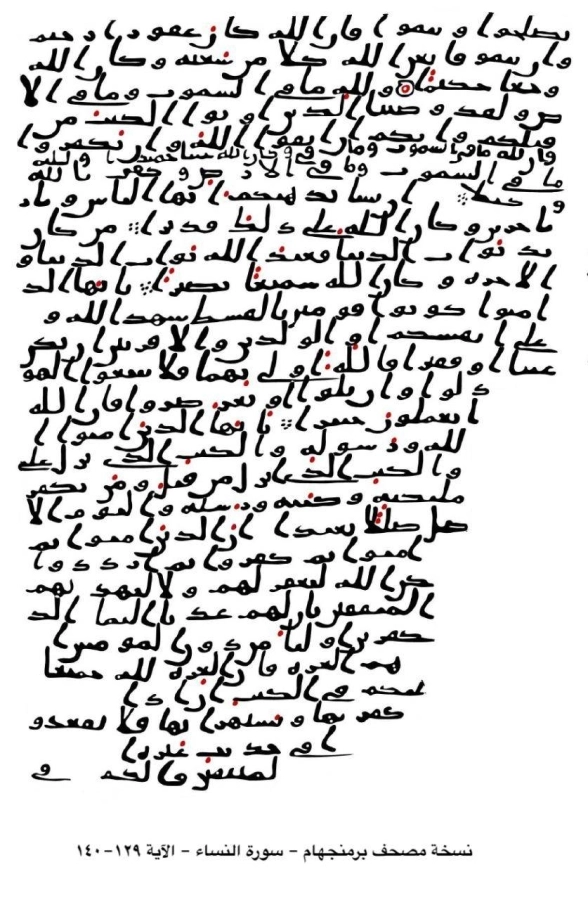 تصلحوا وتتقوا فان الله كان غفورا رحيم
وان يتفرقا يغن الله كلا من سعته وكان الله
وسعا حكيما ولله ما في السموت وما في الا
رض ولقد وصينا الذين اوتوا الكتب من
قبلكم واياكم ان اتقوا الله وان تكفروا
فان لله ما في السموت وما في وكان الله غنيا حميدا ولله
ما في السموت وما في الارض وكفى بالله
وكيلا ان يشا يذهبكم ايها الناس ويا
باخرين وكان الله على ذلك قديرا من كان
يريد ثواب الدنيا فعند الله ثواب الدنيا و
الاخرة وكان الله سميعا بصيرا يايها الذ
امنوا كونوا قومين بالقسط شهدا لله و
على انفسكم او الولدين والاقربين ان يكن
غنيا او فقيرا فالله اولى بهما فلا تتبعوا الهو
دلوا وان تلوا او تعرضوا فان الله
ا تعملون خبيرا يايها الذين امنوا ا
لله ورسوله والكتب الذي نزل على
والكتب الذي انزل من قبل ومن يكفر
ملئكته وكتبه ورسله واليوم الا
ضل ضللا بعيدا ان الذين امنوا ثم
امنوا ثم كفروا ثم ازددوا
كن الله ليغفر لهم ولا ليهديهم
المنفقين بان لهم عذابا اليما الذ
كفرين اوليا من دون المومنين ا
هم العزة فان العزة لله جميعا
عليكم في الكتب ان اذا
كفر بها ويستهزا بها فلا تقعدو
ا في حديث غيره ا
لمنفقين والكـ في
نسخة مصحف برمنجهام – سورة النساء – الآية ١٢٩-١٤٠